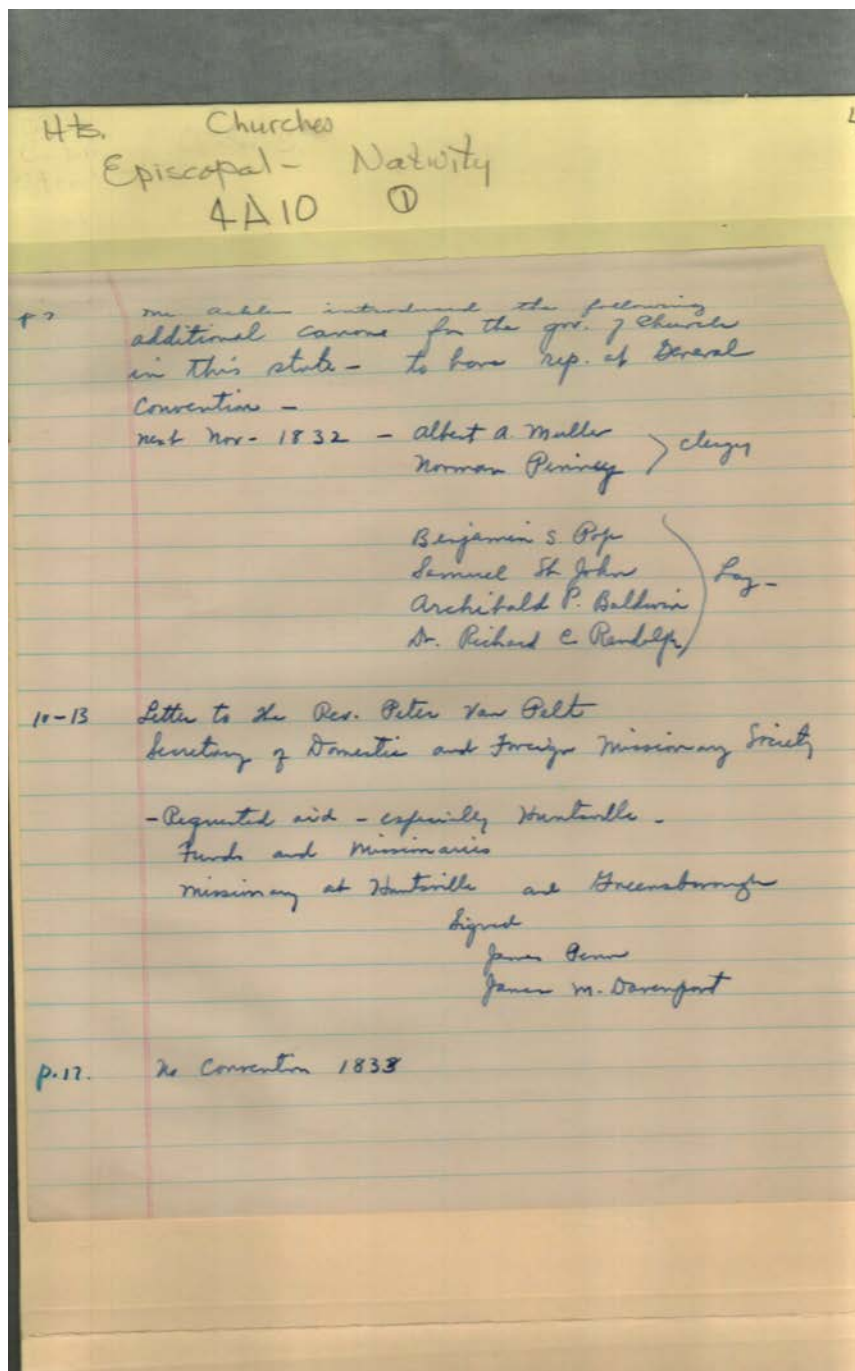 Hts. Churches
Episcopal - Nativity
4A10 ①
introduced the following
additional canons for the gov. of Church
in this state - to have rep. at General
Convention -
next Nov - 1832 - Albert A. Muller
Norman Pinney clergy
Benjamin S. Pope
Samuel St. John
Archibald P. Baldwin Lay -
Dr. Richard C. Randolph
10-13 Letter to the Rev. Peter Van Pelt
Secretary of Domestic and Foreign Missionary Society
- Requested aid - especially Huntsville -
Funds and Missionaries
missionary at Huntsville and Greensborough
Signed
James Penn
James M. Davenport
No Convention 1833